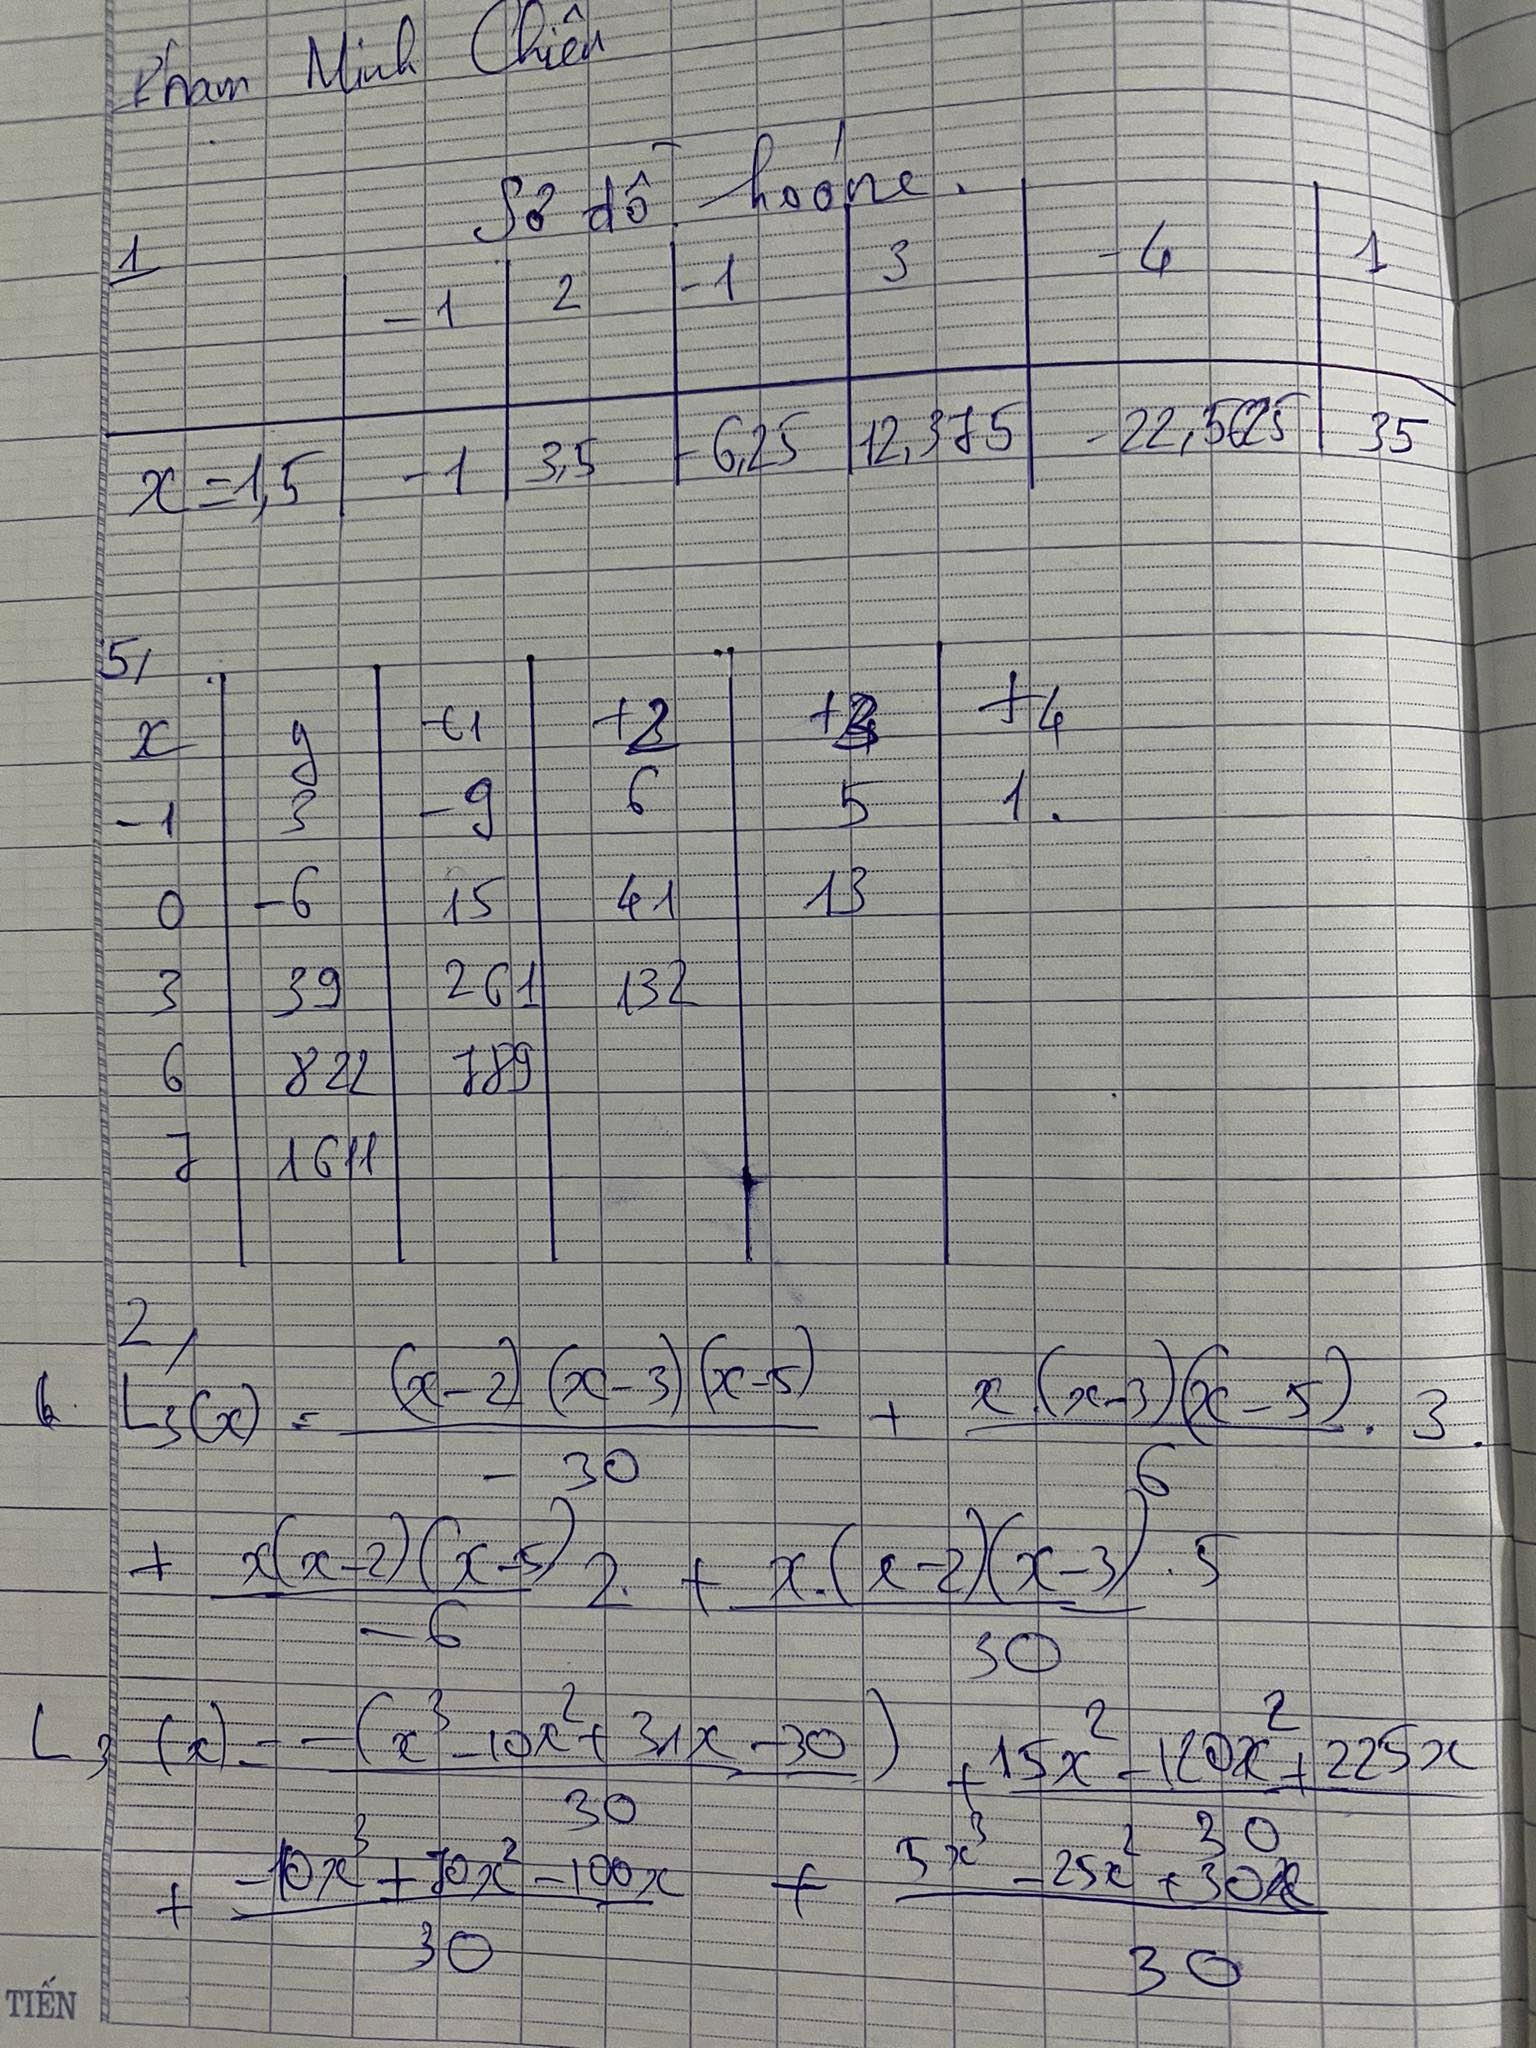 Phạm Minh Chiến
Sơ đồ hoóne.
1
-1 2 -1 3 -4 1
x = 1,5 -1 3,5 -6,25 12,375 -22,5625 35
5,
x y +1 +2 +4
-1 3 -9 6 5 1.
0 -6 15 41 13
3 39 261 132
6 822 789
7 1611
2,
L3(x) = (x-2)(x-3)(x-5)/-30 + x.(x-3)(x-5)/6 . 3.
+ x(x-2)(x-5)/-6 2. + x.(x-2)(x-3)/30 . 5
L3(x) = -(x³-10x²+31x-30)/30 + 15x²-120x²+225x/30
+ -10x³+70x²-100x/30 + 5x³-25x²+30x/30
TIẾN